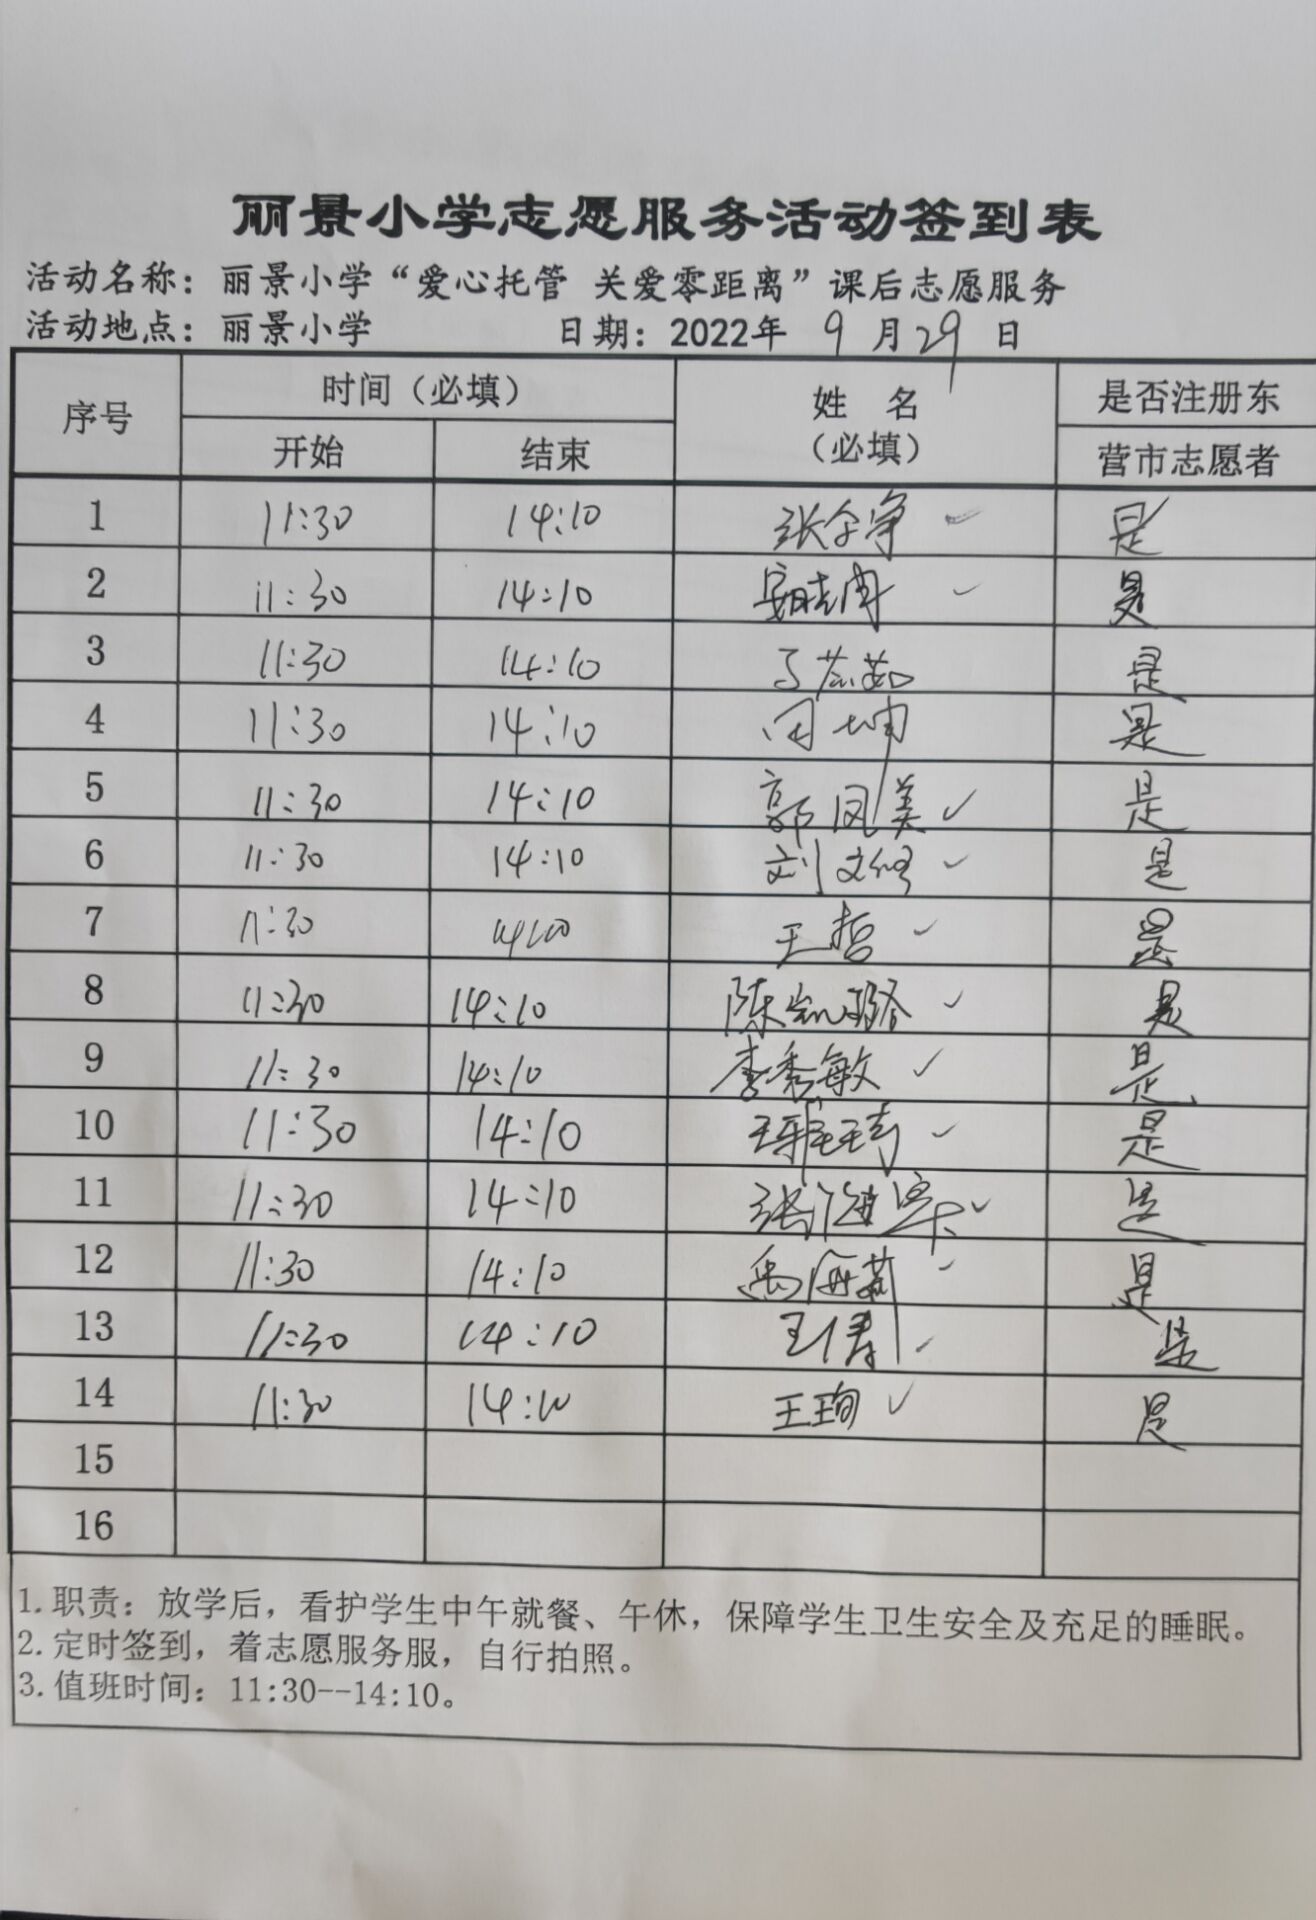 丽景小学志愿服务活动签到表
活动名称：丽景小学“爱心托管 关爱零距离”课后志愿服务
活动地点：丽景小学 日期：2022年 9 月 29 日
序号 时间（必填） 姓 名（必填） 是否注册东营市志愿者
开始 结束
1 11:30 14:10 是
2 11:30 14:10 是
3 11:30 14:10 是
4 11:30 14:10 田坤 是
5 11:30 14:10 郭凤美 ✓ 是
6 11:30 14:10 刘文修 ✓ 是
7 11:30 王哲 ✓ 是
8 11:30 14:10 陈凯璐 ✓ 是
9 11:30 14:10 李秀敏 ✓ 是
10 11:30 14:10 ✓ 是
11 11:30 14:10 ✓ 是
12 11:30 14:10 禹海燕 ✓ 是
13 11:30 14:10 王倩 ✓ 是
14 11:30 14:10 王珣 ✓ 是
15
16
1.职责：放学后，看护学生中午就餐、午休，保障学生卫生安全及充足的睡眠。
2.定时签到，着志愿服务服，自行拍照。
3.值班时间：11:30--14:10。